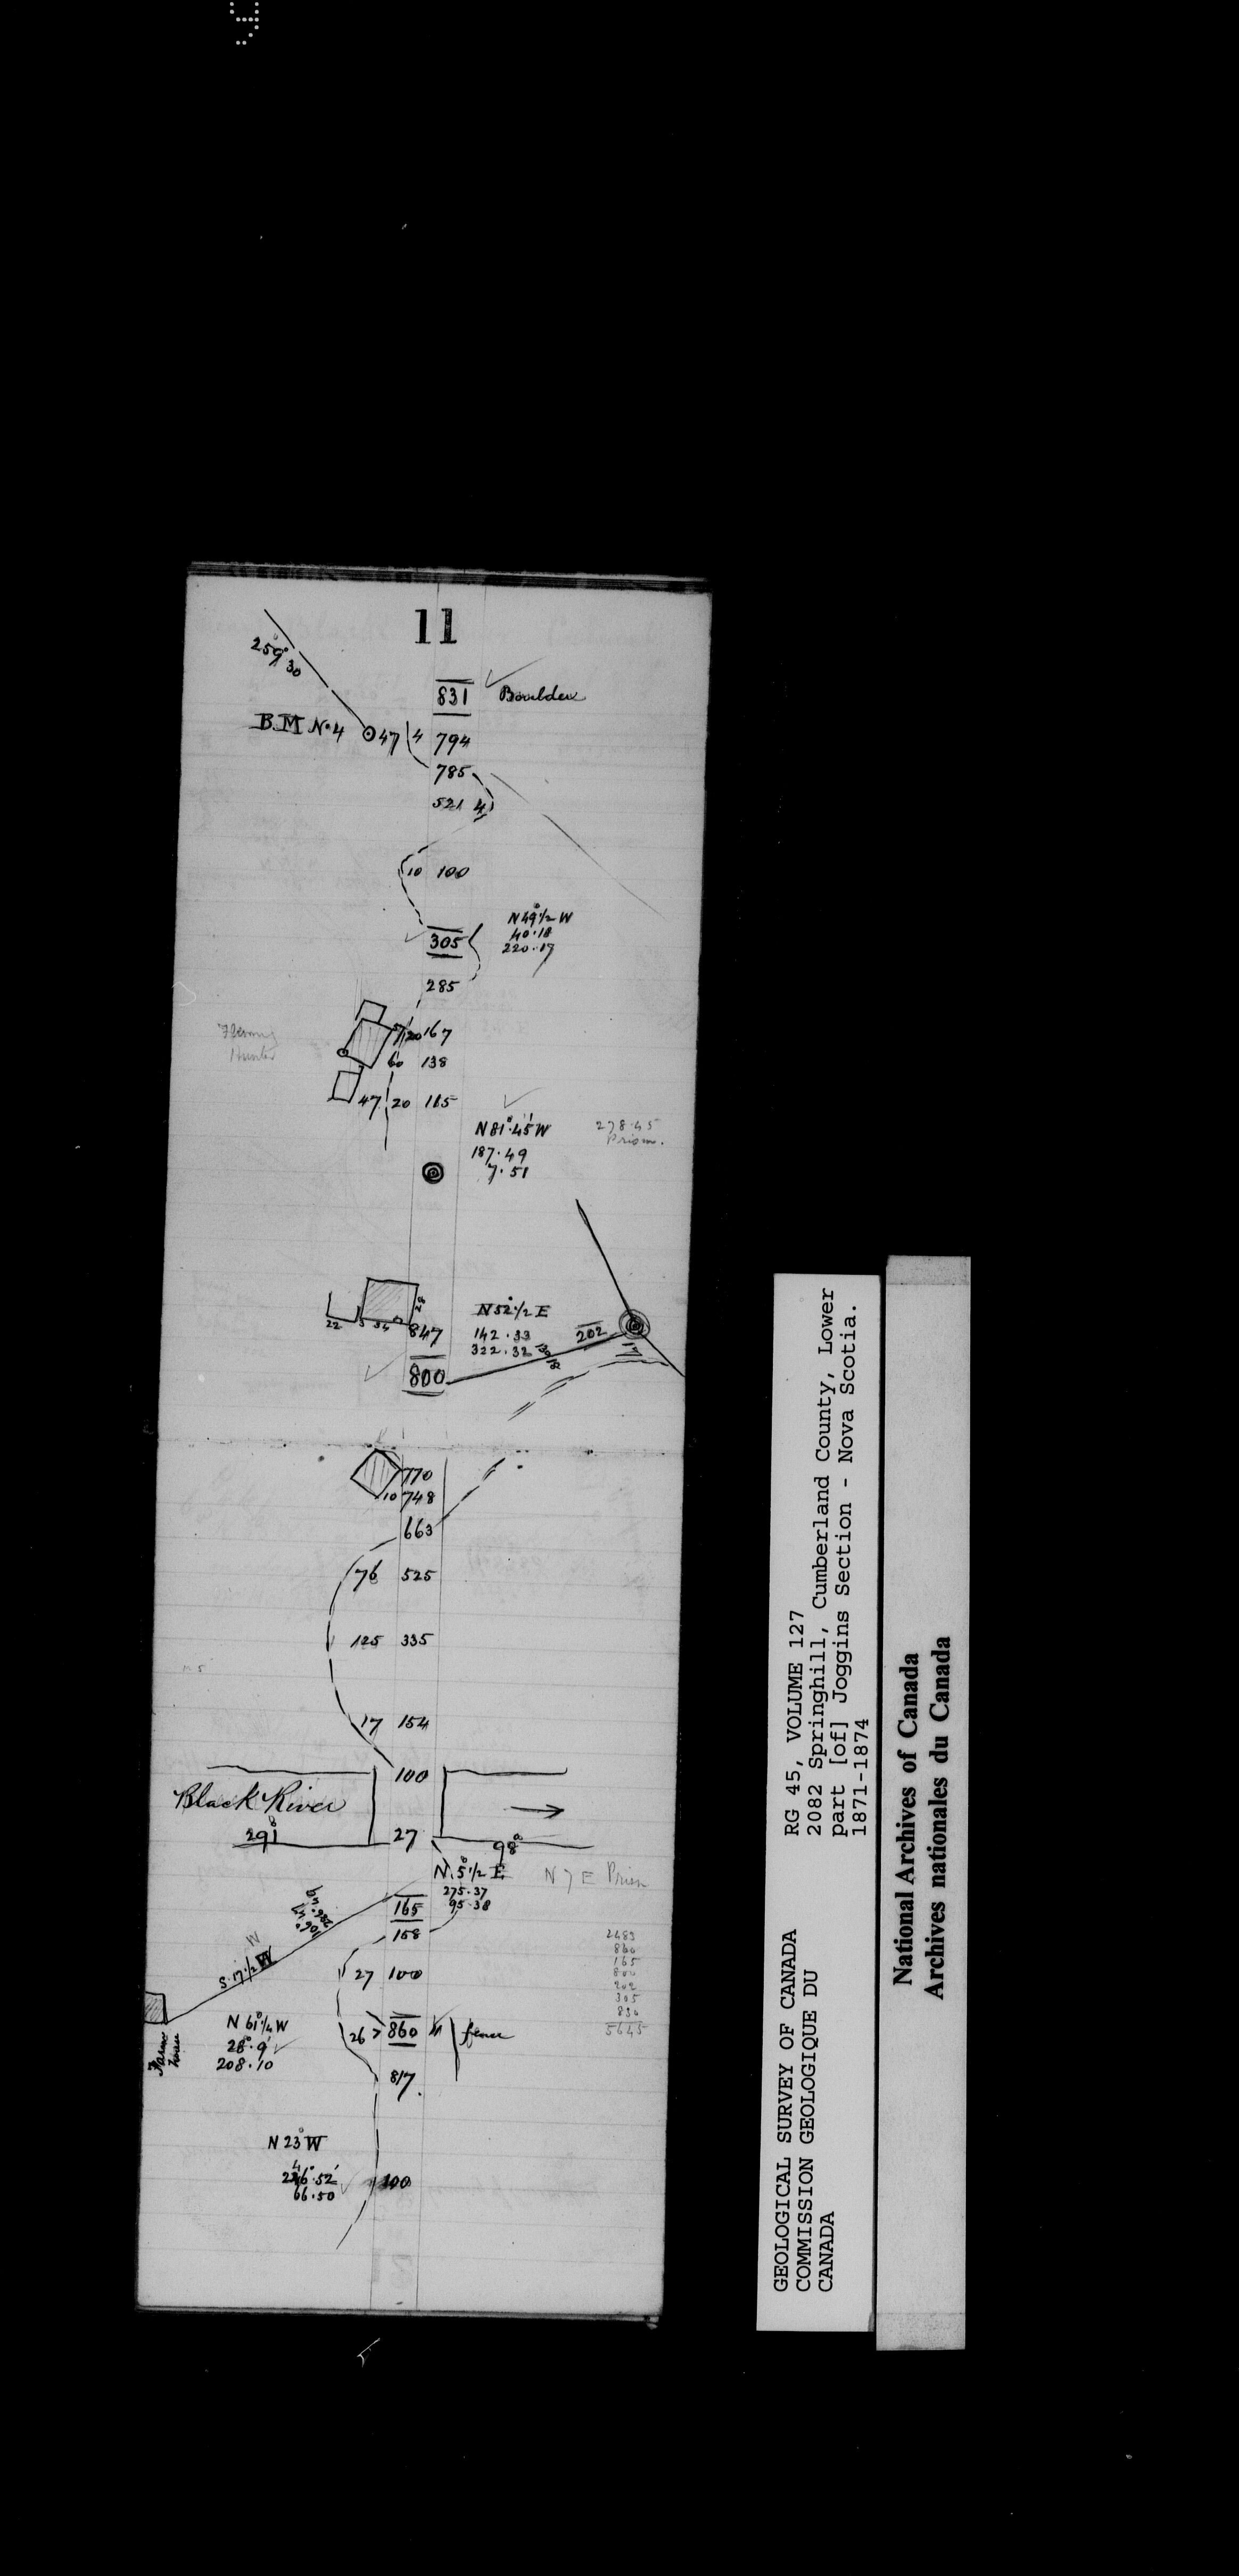 11
259° 30
831 Boulder
BM No 4 47 4 794
785
521 4
10 100
N49°1/2 W
40.18
305
220.17
285
57 20 167
Hunter
60 138
47 20 115
N81°.45' W
278.45
Prism.
187.49
7.51
N52°1/2 E
22 3 34
847
142.33
322.32
202
17
800
770
10 748
663
76 525
125 335
17 154
100
Black River
291° 27 98°
N.5°1/2 E N 7 E Prism
275.37
165 95.38
158
286.49
106.47
S.17.1/2 W
27 100
2483
860
165
800
202
305
830
5645
N 61°1/4 W
28°.9'
208.10
26 860 fence
Farm house
817
N 23° W
246°.52'
66.50
100
GEOLOGICAL SURVEY OF CANADA
COMMISSION GEOLOGIQUE DU
CANADA
RG 45, VOLUME 127
2082 Springhill, Cumberland County, Lower
part [of] Joggins Section - Nova Scotia.
1871-1874
National Archives of Canada
Archives nationales du Canada